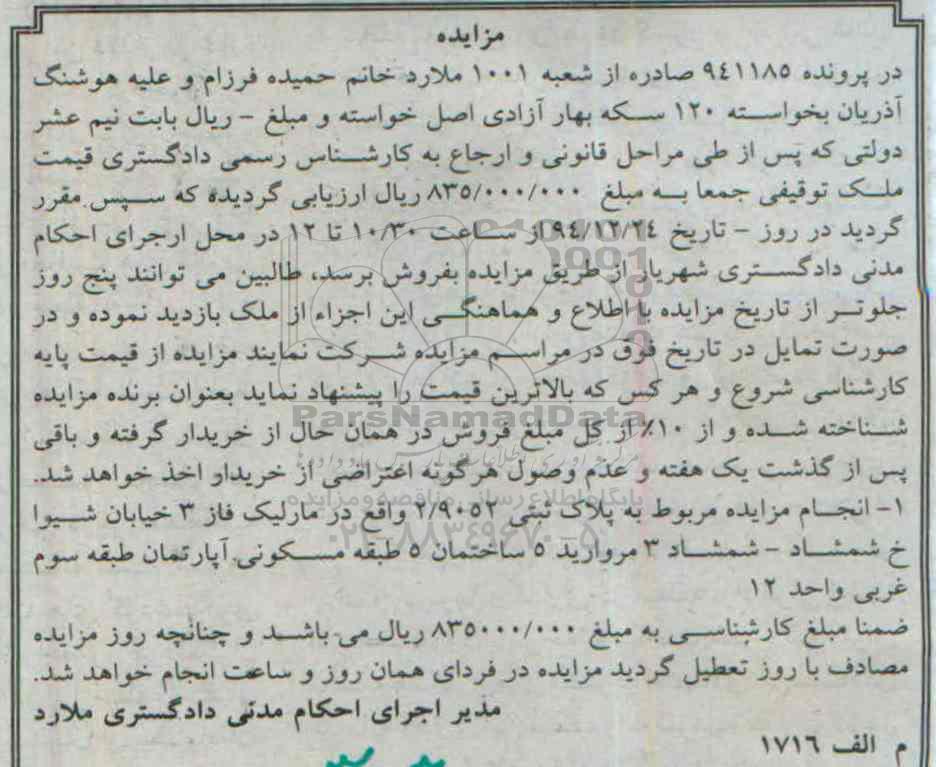 مزایده
در پرونده ٩٤١١٨٥ صادره از شعبه ١٠٠١ ملارد خانم حمیده فرزام و علیه هوشنگ
آذریان بخواسته ١٢٠ سکه بهار آزادی اصل خواسته و مبلغ - ریال بابت نیم عشر
دولتی که پس از طی مراحل قانونی و ارجاع به کارشناس رسمی دادگستری قیمت
ملک توقیفی جمعا به مبلغ ٨٣٥/٠٠٠/٠٠٠ ریال ارزیابی گردیده که سپس مقرر
گردید در روز - تاریخ ٩٤/١٢/٢٤ از ساعت ١٠/٣٠ تا ١٢ در محل ارجرای احکام
مدنی دادگستری شهریار از طریق مزایده بفروش برسد، طالبین می توانند پنج روز
جلوتر از تاریخ مزایده با اطلاع و هماهنگی این اجزاء از ملک بازدید نموده و در
صورت تمایل در تاریخ فوق در مراسم مزایده شرکت نمایند مزایده از قیمت پایه
کارشناسی شروع و هر کس که بالاترین قیمت را پیشنهاد نماید بعنوان برنده مزایده
ParsNamadData
شناخته شده و از ١٠٪ از کل مبلغ فروش در همان حال از خریدار گرفته و باقی
پس از گذشت یک هفته و عدم وصول هرگونه اعتراضی از خریداو اخذ خواهد شد.
پایگاه اطلاع رسانی مناقصه و مزایده
١- انجام مزایده مربوط به پلاک ثبتی ٢/٩٠٥٢ واقع در مارلیک فاز ٣ خیابان شیوا
٠٢١-٨٨٣٤٩٦٧٠-٥
خ شمشاد - شمشاد ٣ مروارید ٥ ساختمان ٥ طبقه مسکونی آپارتمان طبقه سوم
غربی واحد ١٢
ضمنا مبلغ کارشناسی به مبلغ ٨٣٥٠٠٠/٠٠٠ ریال می باشد و چنانچه روز مزایده
مصادف با روز تعطیل گردید مزایده در فردای همان روز و ساعت انجام خواهد شد.
مدیر اجرای احکام مدنی دادگستری ملارد
م الف ١٧١٦